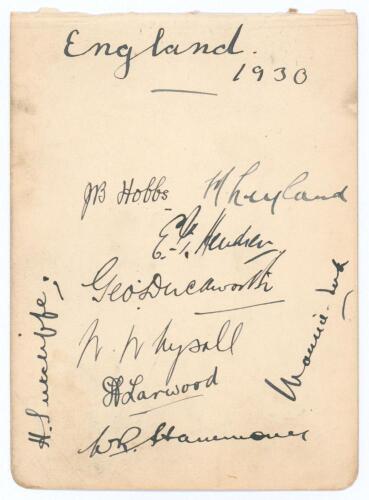 England.
1930
JB Hobbs
M Leyland
E. Hendren
Geo. Duckworth
W W Whysall
H Larwood
W R Hammond
H Sutcliffe.
Maurice Tate